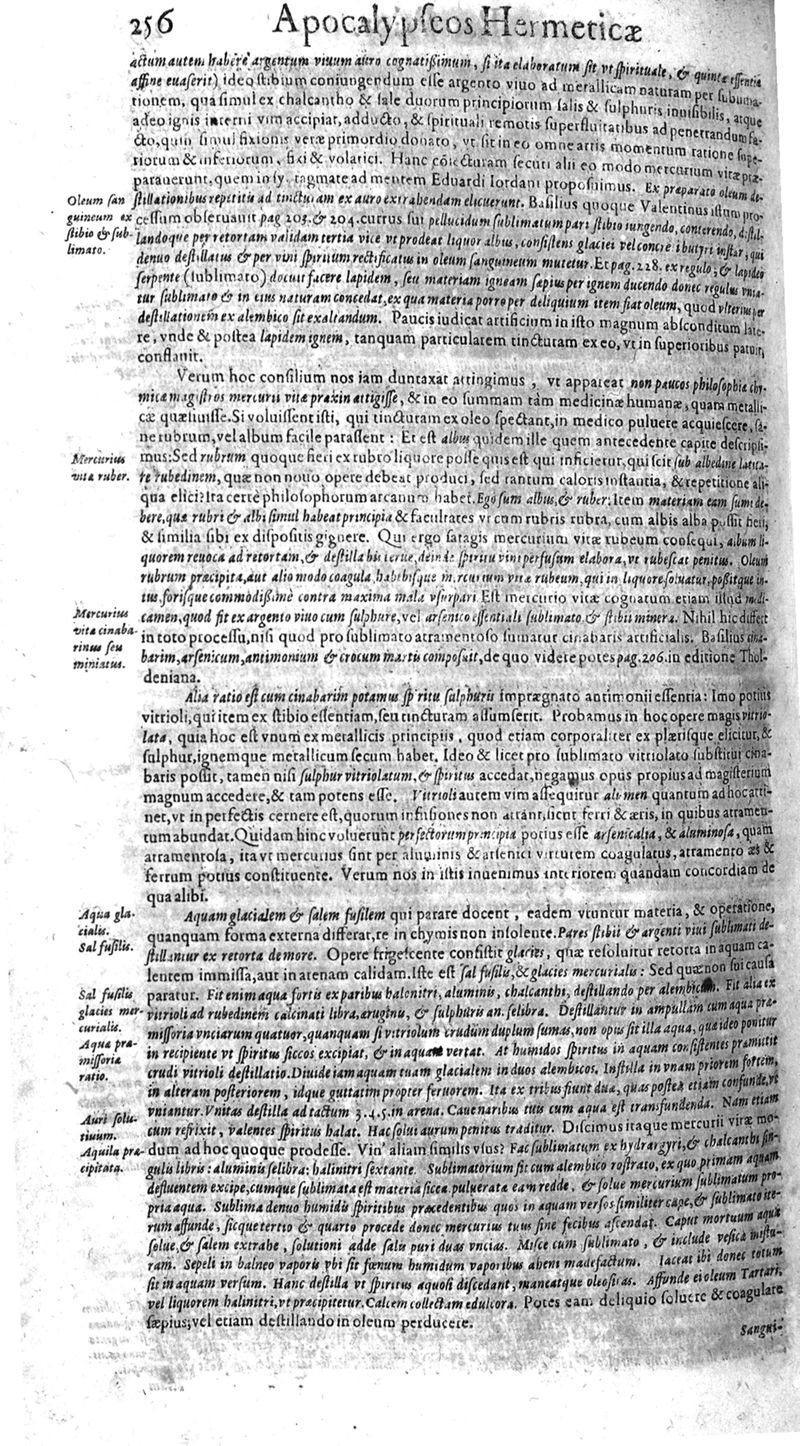 256 Apocalypseos Hermeticæ
actum autem habere argentum viuum auro cognatißimum, si ita elaboratum sit vt spirituale, & quintæ essentiæ
affine euaserit) ideo stibium coniungendum esse argento viuo ad metallicam naturam per sublima-
tionem, qua simul ex chalcantho & sale duorum principiorum salis & sulphuris inuisibilis, atque
adeo ignis interni vim accipiat, adducto, & spirituali remotis superfluitatibus ad penetrandum fa-
cto, quin simul fixionis veræ primordio donato, vt sit in eo omne artis momentum ratione supe-
riorum & inferiorum, fixi & volatici. Hanc coniecturam secuti alii eo modo mercurium vitæ præ-
parauerunt, quem in syntagmate ad mentem Eduardi Iordani proposuimus. Ex præparato oleum de-
Oleum san
guineum ex
stibio & sub-
limato.
stillationibus repetitis ad tincturam ex auro extrahendam elicuerunt. Basilius quoque Valentinus istum pro-
cessum obseruauit pag 203. & 204. cursus sui pellucidum sublimatum pari stibio iungendo, conterendo, distil-
landoque per retortam validam tertia vice vt prodeat liquor albus, consistens glaciei vel concreti butyri instar, qui
denuo destillatus & per vini spiritum rectificatus in oleum sanguineum mutetur. Et pag. 228. ex regulo, & lapideo
serpente (sublimato) docuit facere lapidem, seu materiam igneam sæpius per ignem ducendo donec regulus vnia-
tur sublimato & in eius naturam concedat, ex qua materia porro per deliquium item fiat oleum, quod vlterius per
destillationem ex alembico sit exaltandum. Paucis iudicat artificium in isto magnum absconditum late-
re, vnde & postea lapidem ignem, tanquam particularem tincturam ex eo, vt in superioribus patuit,
conflauit.
Verum hoc consilium nos iam duntaxat attingimus, vt appareat non paucos philosophiæ chy-
micæ magistros mercurii vitæ praxin attigisse, & in eo summam tam medicinæ humanæ, quam metalli-
cæ quæsiuisse. Si voluissent isti, qui tincturam ex oleo spectant, in medico puluere acquiescere, sa-
ne rubrum, vel album facile parassent: Et est albus quidem ille quem antecedente capite descripsi-
Mercurius
vitæ ruber.
mus: Sed rubrum quoque fieri ex rubro liquore posse quis est qui inficietur, qui scit sub albedine latita-
re rubedinem, quæ non nouo opere debeat produci, sed tantum caloris instantia, & repetitione ali-
qua elici? Ita certe philosophorum arcanum habet. Ego sum albus, & ruber: Item materiam eam sumi de-
bere, quæ rubri & albi simul habeat principia & facultates vt cum rubris rubra, cum albis alba possit fieri,
& similia sibi ex dispositis gignere. Qui ergo satagis mercurium vitæ rubeum consequi, album li-
quorem reuoca ad retortam, & destilla bis terue, deinde spiritu vini perfusum elabora, vt rubescat penitus. Oleum
rubrum præcipita, aut alio modo coagula, habebisque mercurium vitæ rubeum, qui in liquore soluatur, poßitque in-
tus, forisque commodißimè contra maxima mala vsurpari Est mercurio vitæ cognatum etiam illud medi-
Mercurius
vitæ cinaba-
rinus seu
miniatus.
camen, quod fit ex argento viuo cum sulphure, vel arsenico essentiali sublimato & stibii minera. Nihil hic differt
in toto processu, nisi quod pro sublimato atramentoso sumatur cinabaris artificialis. Basilius cina-
barim, arsenicum, antimonium & crocum martis composuit, de quo videre potes pag. 206. in editione Thol-
deniana.
Alia ratio est cum cinabarim potamus spiritu sulphuris imprægnato antimonii essentia: Imo potius
vitrioli, qui item ex stibio essentiam, seu tincturam assumserit. Probamus in hoc opere magis vitrio-
lata, quia hoc est vnum ex metallicis principiis, quod etiam corporaliter ex plærisque elicitur, &
sulphur, ignemque metallicum secum habet. Ideo & licet pro sublimato vitriolato substitui cina-
baris possit, tamen nisi sulphur vitriolatum, & spiritus accedat, negamus opus propius ad magisterium
magnum accedere, & tam potens esse. Vitrioli autem vim assequitur alumen quantum ad hoc atti-
net, vt in perfectis cernere est, quorum infusiones non atrant, sicut ferri & æris, in quibus atramen-
tum abundat. Quidam hinc voluerunt perfectorum principia potius esse arsenicalia, & aluminosa, quam
atramentosa, ita vt mercurius sint per aluminis & arsenici virtutem coagulatus, atramento æs &
ferrum potius constituente. Verum nos in istis inuenimus interiorem quandam concordiam de
qua alibi.
Aqua gla-
cialis.
Sal fusilis.
Aquam glacialem & salem fusilem qui parare docent, eadem vtuntur materia, & operatione,
quanquam forma externa differat, re in chymis non insolente. Pares stibii & argenti viui sublimati de-
stillantur ex retorta de more. Opere frigescente consistit glacies, quæ resoluitur retorta in aquam ca-
lentem immissa, aut in arenam calidam. Iste est sal fusilis, & glacies mercurialis: Sed quæ non sui causa
Sal fusilis
glacies mer-
curialis.
Aqua præ-
missoria
ratio.
paratur. Fit enim aqua fortis ex paribus halonitri, aluminis, chalcanthi, destillando per alembicum. Fit alia ex
vitrioli ad rubedinem calcinati libra, æruginis, & sulphuris an. selibra. Destillantur in ampullam cum aqua præ-
missoria vnciarum quatuor, quanquam si vitriolum crudum duplum sumas, non opus sit illa aqua, quæ ideo ponitur
in recipiente vt spiritus siccos excipiat, & in aquam vertat. At humidos spiritus in aquam consistentes præmittit
crudi vitrioli destillatio. Diuide iam aquam tuam glacialem in duos alembicos. Instilla in vnam priorem fortem,
in alteram posteriorem, idque guttatim propter feruorem. Ita ex tribus fiunt duæ, quas postea etiam confunde, vt
Auri solu-
tiuum.
Aquila præ-
cipitata.
vniantur. Vnitas destilla ad tactum 3.4.5. in arena. Caue naribus tuis cum aqua est transfundenda. Nam etiam
cum refrixit, valentes spiritus halat. Hac solui aurum penitus traditur. Discimus itaque mercurii vitæ mo-
dum ad hoc quoque prodesse. Vin' aliam similis vsus? Fac sublimatum ex hydrargyri, & chalcanthi sin-
gulis libris: aluminis selibra: halinitri sextante. Sublimatorium sit cum alembico rostrato, ex quo primam aquam
defluentem excipe, cumque sublimata est materia sicca, puluerata eam redde, & solue mercurium sublimatum pro-
pria aqua. Sublima denuo humidis spiritibus præcedentibus quos in aquam versos similiter cape, & sublimato ite-
rum affunde, sicque tertio & quarto procede donec mercurius tuus sine fecibus ascendat. Caput mortuum aqua
solue, & salem extrahe, solutioni adde salis puri duas vncias. Misce cum sublimato, & include vesicæ instu-
ram. Sepeli in balneo vaporis vbi sit fœnum humidum vaporibus aheni madefactum. Iaceat ibi donec totum
sit in aquam versum. Hanc destilla vt spiritus aquosi discedant, maneatque oleositas. Affunde ei oleum Tartari,
vel liquorem halinitri, vt præcipitetur. Calcem collectam edulcora. Potes eam deliquio soluere & coagulare
sæpius; vel etiam destillando in oleum perducere.
Sangui-